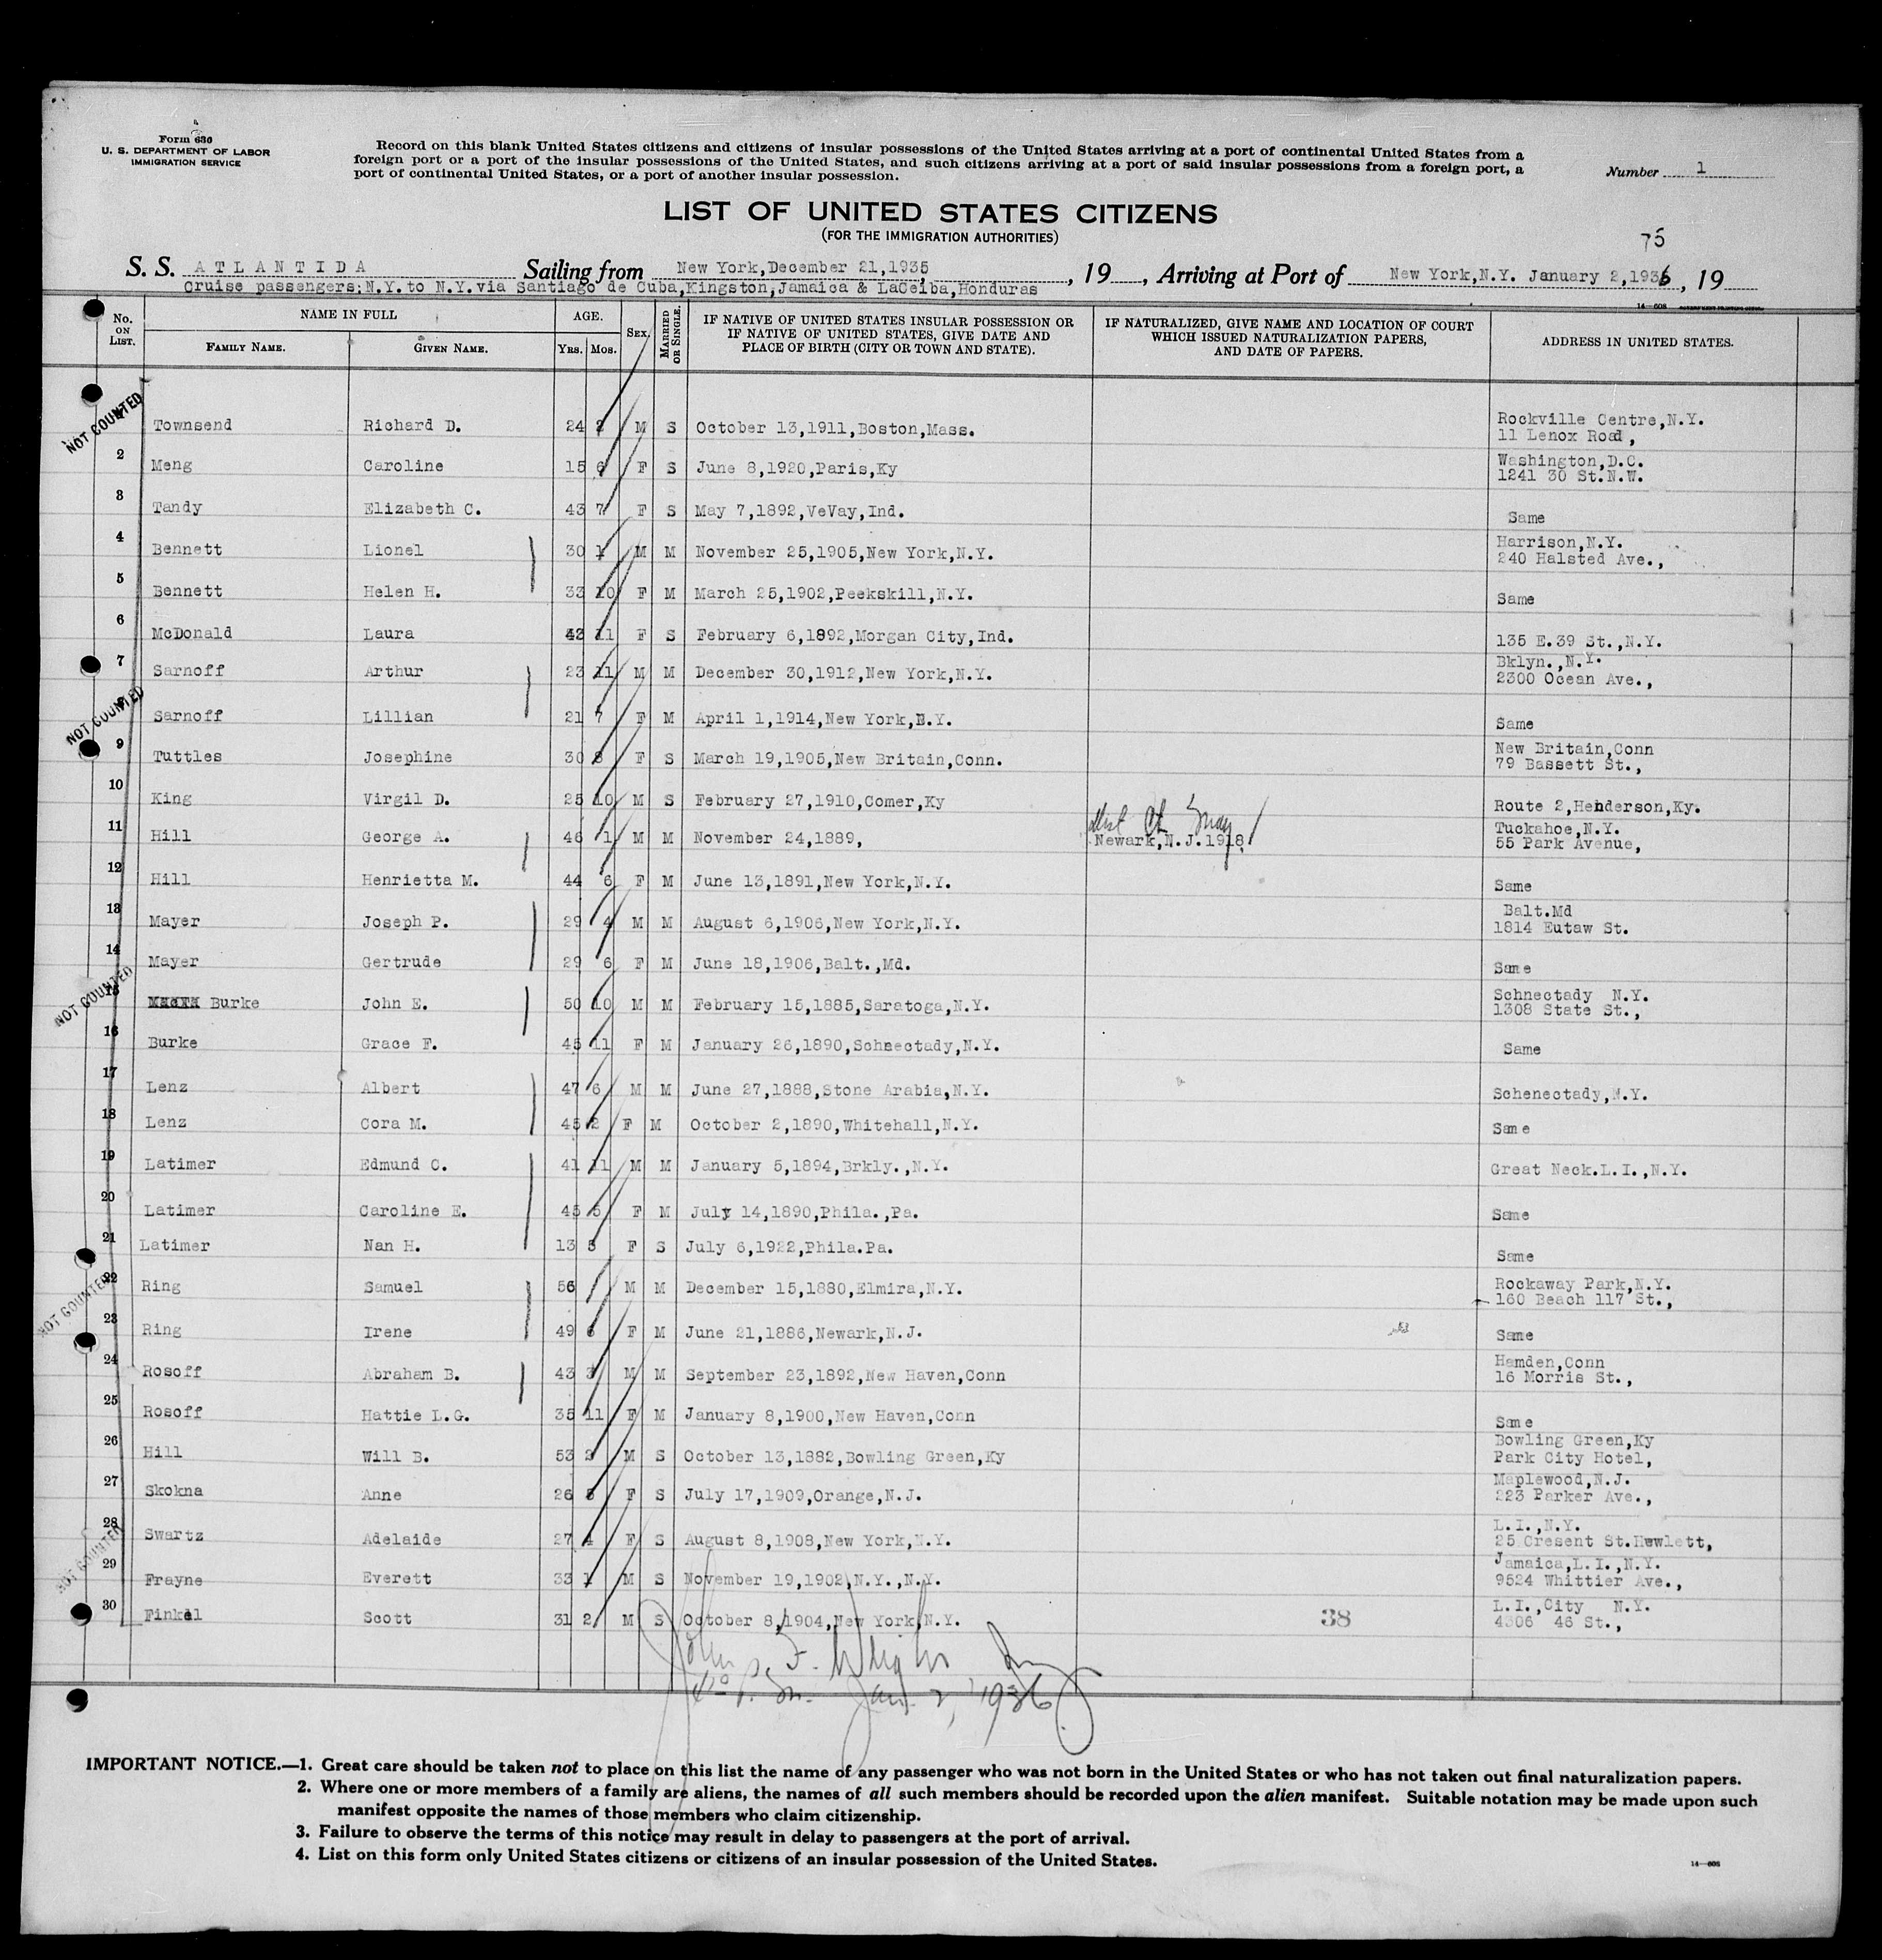 Form 630
U. S. DEPARTMENT OF LABOR
IMMIGRATION SERVICE
Record on this blank United States citizens and citizens of insular possessions of the United States arriving at a port of continental United States from a
foreign port or a port of the insular possessions of the United States, and such citizens arriving at a port of said insular possessions from a foreign port, a
port of continental United States, or a port of another insular possession.
Number 1
LIST OF UNITED STATES CITIZENS
(FOR THE IMMIGRATION AUTHORITIES)
75
S. S. ATLANTIDA Sailing from New York,December 21,1935, 19, Arriving at Port of New York,N.Y. January 2,1936, 19
Cruise passengers:N.Y.to N.Y.via Santiago de Cuba,Kingston,Jamaica & LaCeiba,Honduras
14—608
No. ON LIST. NAME IN FULL AGE. SEX. MARRIED OR SINGLE. IF NATIVE OF UNITED STATES INSULAR POSSESSION OR IF NATIVE OF UNITED STATES, GIVE DATE AND PLACE OF BIRTH (CITY OR TOWN AND STATE). IF NATURALIZED, GIVE NAME AND LOCATION OF COURT WHICH ISSUED NATURALIZATION PAPERS, AND DATE OF PAPERS. ADDRESS IN UNITED STATES.
FAMILY NAME. GIVEN NAME. YRS. MOS.
NOT COUNTED
Townsend Richard D. 24 2 M S October 13,1911,Boston,Mass. Rockville Centre,N.Y. 11 Lenox Road,
2 Meng Caroline 15 6 F S June 8,1920,Paris,Ky Washington,D.C. 1241 30 St.N.W.
3 Tandy Elizabeth C. 43 7 F S May 7,1892,VeVay,Ind. Same
4 Bennett Lionel 30 1 M M November 25,1905,New York,N.Y. Harrison,N.Y. 240 Halsted Ave.,
5 Bennett Helen H. 33 10 F M March 25,1902,Peekskill,N.Y. Same
6 McDonald Laura 43 11 F S February 6,1892,Morgan City,Ind. 135 E.39 St.,N.Y.
7 Sarnoff Arthur 23 11 M M December 30,1912,New York,N.Y. Bklyn.,N.Y. 2300 Ocean Ave.,
NOT COUNTED
Sarnoff Lillian 21 7 F M April 1,1914,New York,N.Y. Same
9 Tuttles Josephine 30 8 F S March 19,1905,New Britain,Conn. New Britain,Conn 79 Bassett St.,
10 King Virgil D. 25 10 M S February 27,1910,Comer,Ky Route 2,Henderson,Ky.
11 Hill George A. 46 1 M M November 24,1889, Newark,N.J.1918 Tuckahoe,N.Y. 55 Park Avenue,
12 Hill Henrietta M. 44 6 F M June 13,1891,New York,N.Y. Same
13 Mayer Joseph P. 29 4 M M August 6,1906,New York,N.Y. Balt.Md 1814 Eutaw St.
14 Mayer Gertrude 29 6 F M June 18,1906,Balt.,Md. Same
NOT COUNTED
15 Burke John E. 50 10 M M February 15,1885,Saratoga,N.Y. Schnectady N.Y. 1308 State St.,
16 Burke Grace F. 45 11 F M January 26,1890,Schnectady,N.Y. Same
17 Lenz Albert 47 6 M M June 27,1888,Stone Arabia,N.Y. Schenectady,N.Y.
18 Lenz Cora M. 45 2 F M October 2,1890,Whitehall,N.Y. Same
19 Latimer Edmund C. 41 11 M M January 5,1894,Brkly.,N.Y. Great Neck.L.I.,N.Y.
20 Latimer Caroline E. 45 5 F M July 14,1890,Phila.,Pa. Same
21 Latimer Nan H. 13 5 F S July 6,1922,Phila.Pa. Same
NOT COUNTED
22 Ring Samuel 56 M M December 15,1880,Elmira,N.Y. Rockaway Park,N.Y. 160 Beach 117 St.,
23 Ring Irene 49 6 F M June 21,1886,Newark,N.J. Same
24 Rosoff Abraham B. 43 3 M M September 23,1892,New Haven,Conn Hamden,Conn 16 Morris St.,
25 Rosoff Hattie L.G. 35 11 F M January 8,1900,New Haven,Conn Same
26 Hill Will B. 53 2 M S October 13,1882,Bowling Green,Ky Bowling Green,Ky Park City Hotel,
27 Skokna Anne 26 5 F S July 17,1909,Orange,N.J. Maplewood,N.J. 223 Parker Ave.,
NOT COUNTED
28 Swartz Adelaide 27 4 F S August 8,1908,New York,N.Y. L.I.,N.Y. 25 Cresent St.Hewlett,
29 Frayne Everett 33 1 M S November 19,1902,N.Y.,N.Y. Jamaica,L.I.,N.Y. 9524 Whittier Ave.,
30 Finkel Scott 31 2 M S October 8,1904,New York,N.Y. 38 L.I.,City N.Y. 4306 46 St.,
John F. Wright
P.M. Jan 2, 1936
IMPORTANT NOTICE.—1. Great care should be taken not to place on this list the name of any passenger who was not born in the United States or who has not taken out final naturalization papers.
2. Where one or more members of a family are aliens, the names of all such members should be recorded upon the alien manifest. Suitable notation may be made upon such
manifest opposite the names of those members who claim citizenship.
3. Failure to observe the terms of this notice may result in delay to passengers at the port of arrival.
4. List on this form only United States citizens or citizens of an insular possession of the United States.
14—608